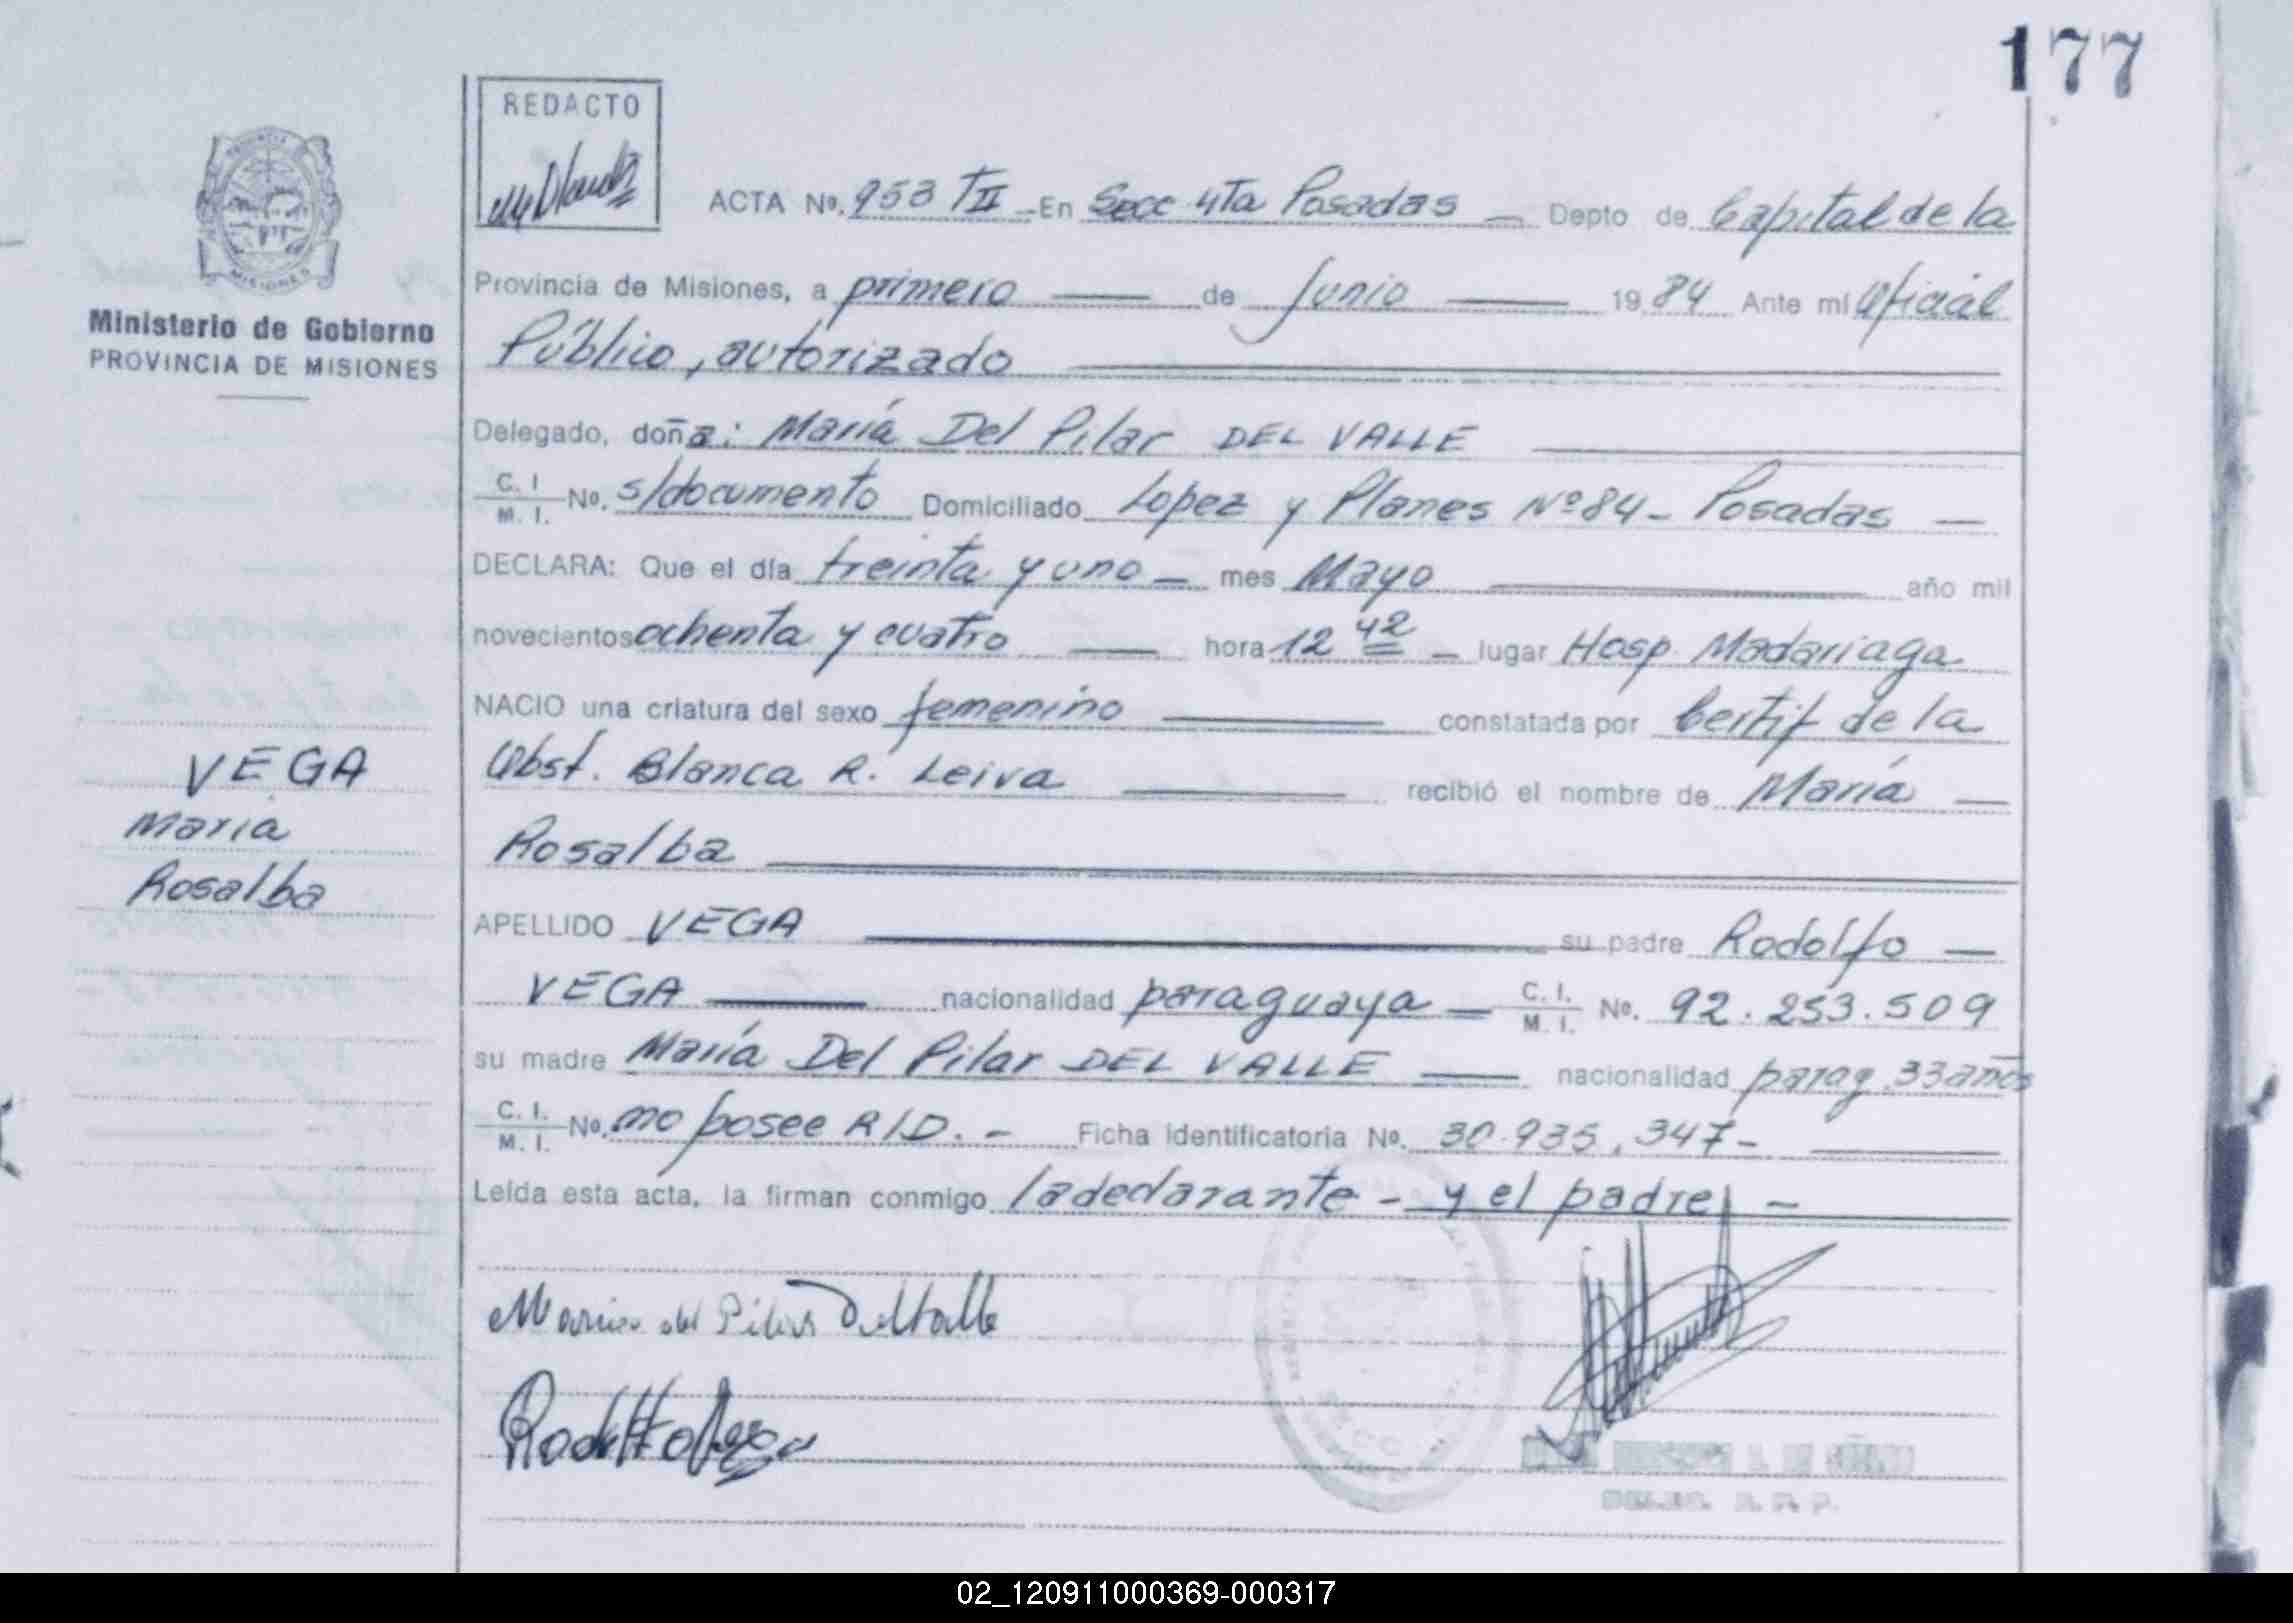 177
REDACTO
ACTA Nº. 953 TII En Secc 4Ta Posadas Depto de Capital de la
Provincia de Misiones, a primero de Junio 1984 Ante mí Oficial
Ministerio de Gobierno
PROVINCIA DE MISIONES
Público, autorizado
Delegado, doña: María Del Pilar DEL VALLE
C. I. M. I. Nº. s/documento Domiciliado Lopez y Planes Nº 84 - Posadas
DECLARA: Que el día treinta y uno mes Mayo año mil
novecientos ochenta y cuatro hora 12 42 lugar Hosp. Madariaga
NACIO una criatura del sexo femenino constatada por Certif de la
Obst. Blanca R. Leiva recibió el nombre de María
Rosalba
VEGA
María
Rosalba
APELLIDO VEGA su padre Rodolfo
VEGA nacionalidad paraguaya C. I. M. I. Nº. 92.253.509
su madre María Del Pilar DEL VALLE nacionalidad parag. 33 años
C. I. M. I. Nº. no posee R/D. - Ficha identificatoria Nº. 30.935.347 -
Leída esta acta, la firman conmigo la declarante - y el padre -
Maria del Pilar Del Valle
Rodolfo Vega
02_120911000369-000317